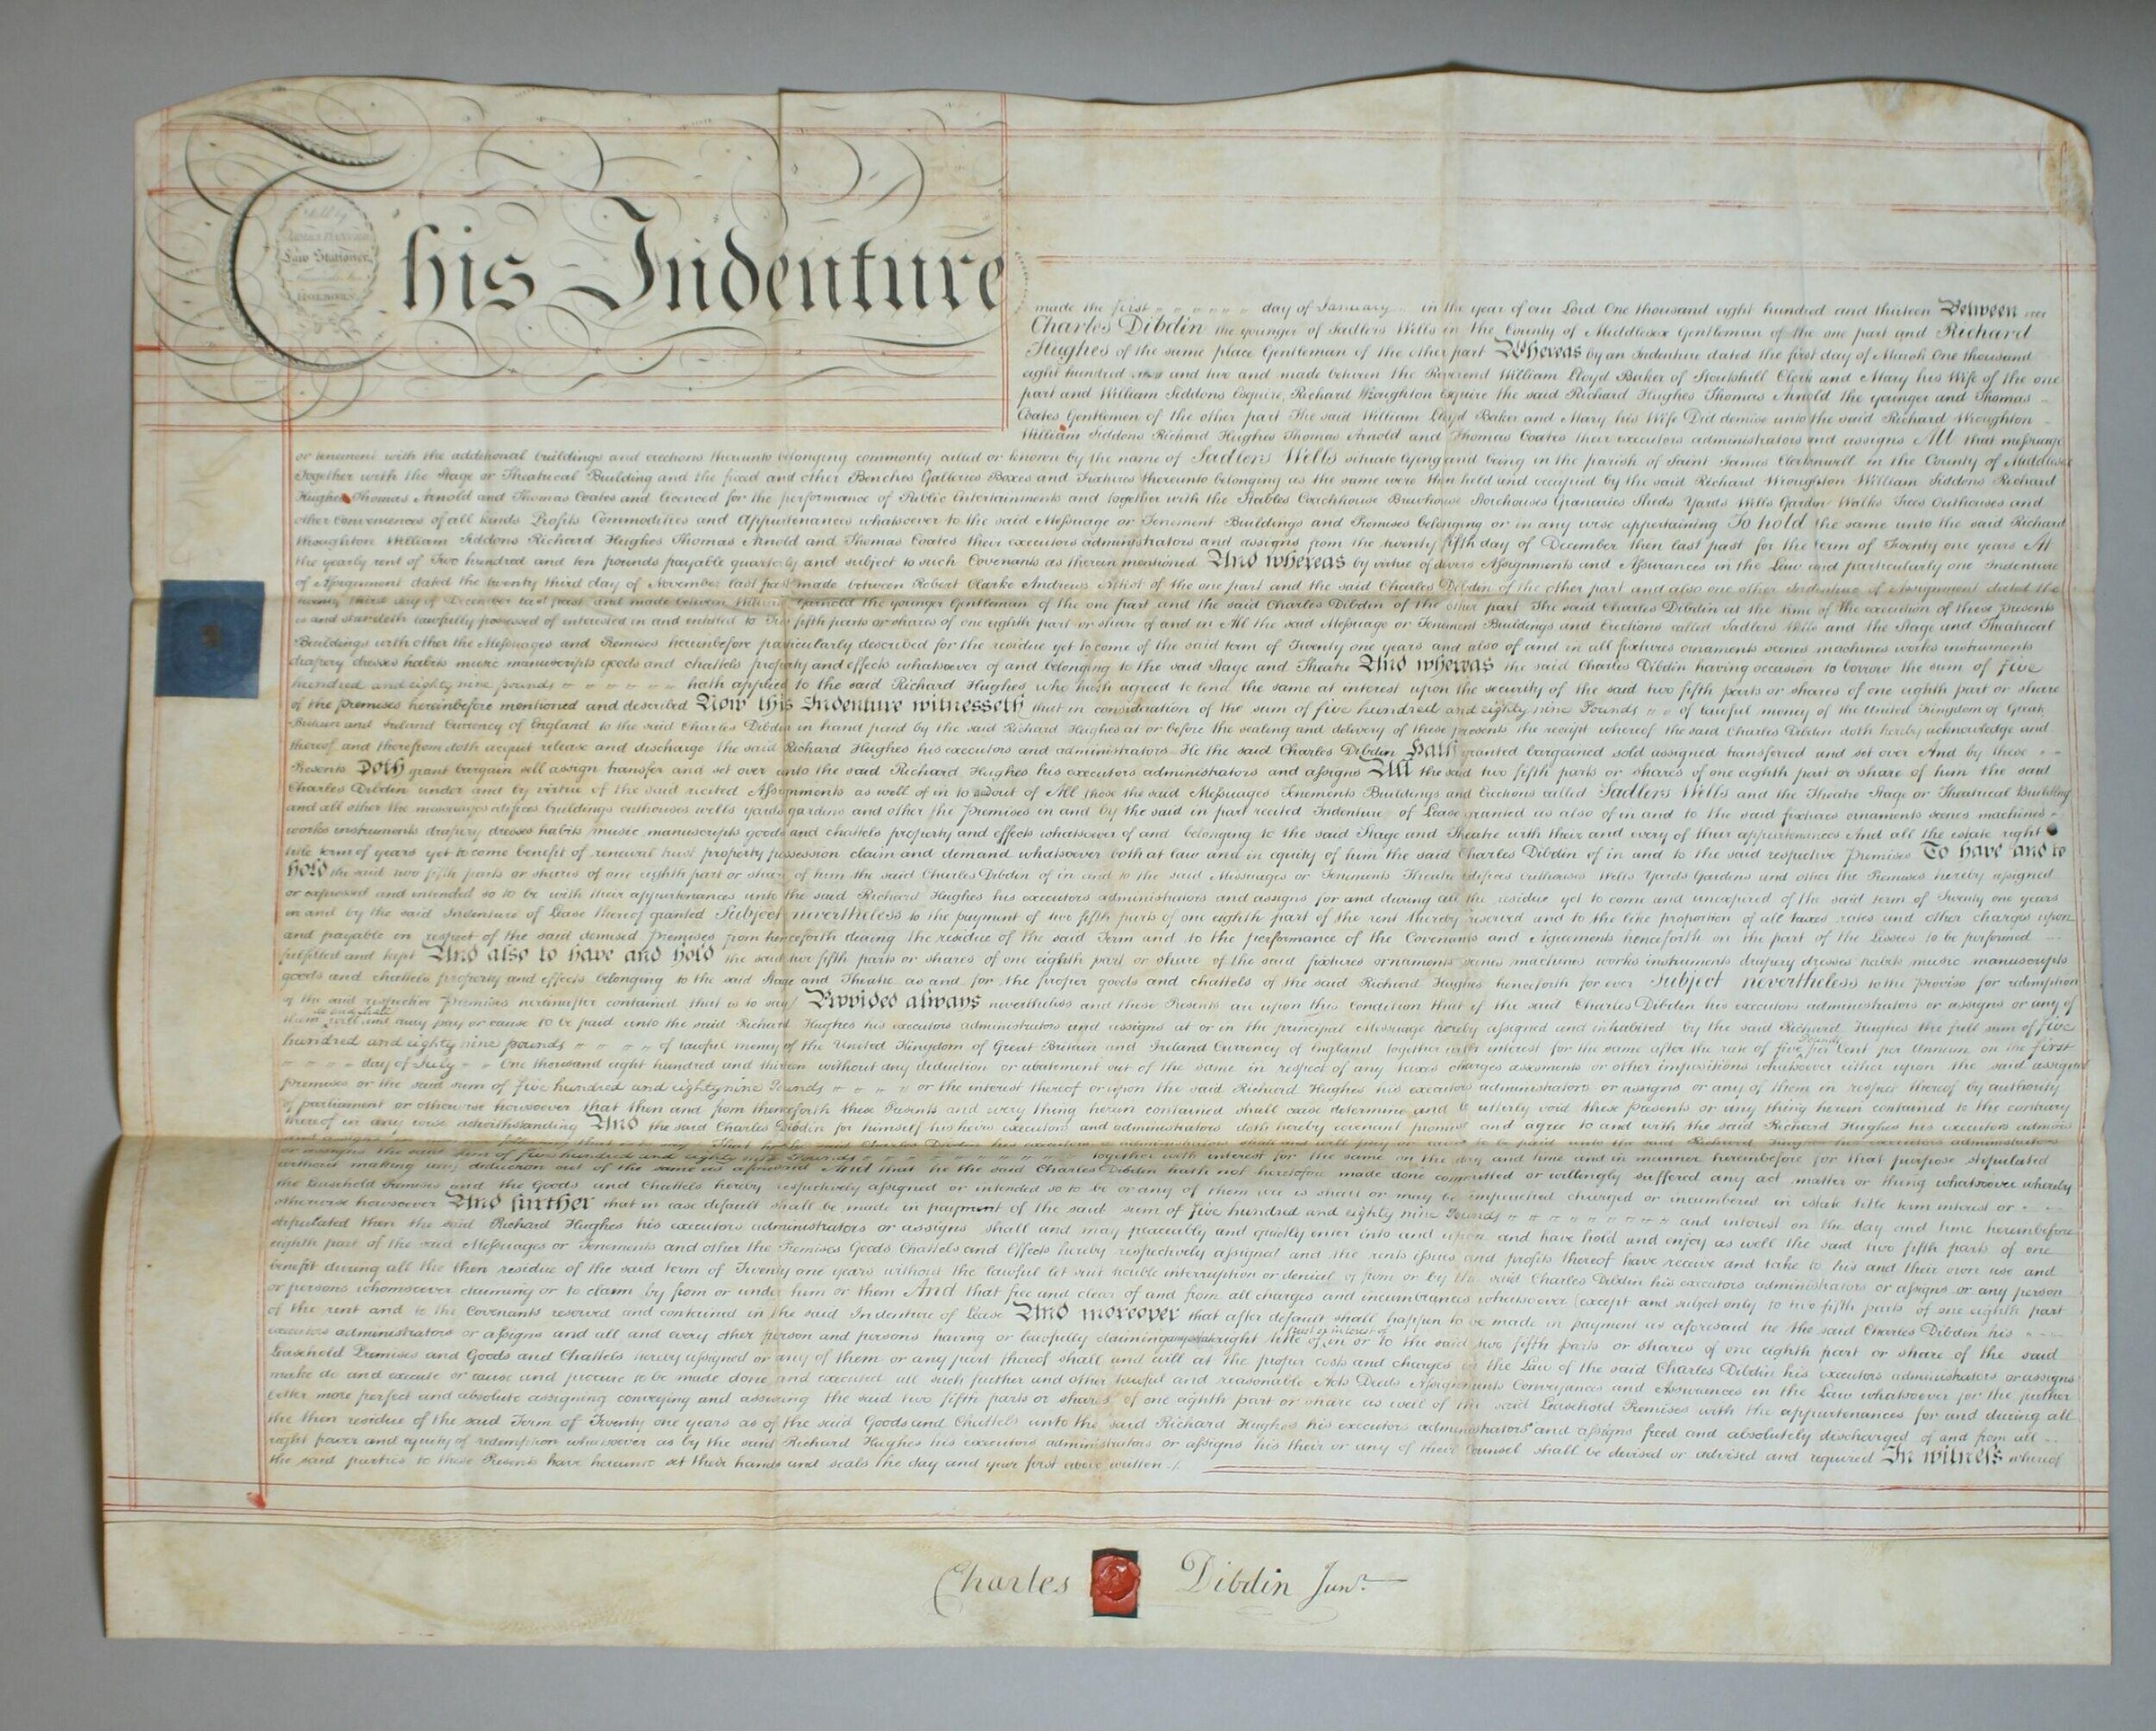 Law Stationer
This Indenture
made the first day of January in the year of our Lord One thousand eight hundred and thirteen Between
Charles Dibdin the younger of Sadlers Wells in the County of Middlesex Gentleman of the one part and Richard
Hughes of the same place Gentleman of the other part Whereas by an Indenture dated the first day of March One thousand
eight hundred and two and made between the Reverend William Lloyd Baker of Stoutshill Clerk and Mary his Wife of the one
part and William Siddons Esquire, Richard Wroughton Esquire the said Richard Hughes Thomas Arnold the younger and Thomas
Coates Gentlemen of the other part The said William Lloyd Baker and Mary his Wife Did demise unto the said Richard Wroughton
William Siddons Richard Hughes Thomas Arnold and Thomas Coates their executors administrators and assigns All that messuage
or tenement with the additional buildings and erections thereunto belonging commonly called or known by the name of Sadlers Wells situate lying and being in the parish of Saint James Clerkenwell in the County of Middlesex
Together with the Stage or Theatrical Building and the fixed and other Benches Galleries Boxes and Fixtures thereunto belonging as the same were then held and occupied by the said Richard Wroughton William Siddons Richard
Hughes Thomas Arnold and Thomas Coates and licenced for the performance of Public Entertainments and together with the Stables Coachhouse Brewhouse Storehouses Granaries Sheds Yards Wells Garden Walks Trees Outhouses and
other Conveniences of all kinds Profits Commodities and Appurtenances whatsoever to the said Messuage or Tenement Buildings and Premises belonging or in any wise appertaining To hold the same unto the said Richard
Wroughton William Siddons Richard Hughes Thomas Arnold and Thomas Coates their executors administrators and assigns from the twenty fifth day of December then last past for the term of Twenty one years At
the yearly rent of Two hundred and ten pounds payable quarterly and subject to such Covenants as therein mentioned And whereas by virtue of divers Assignments and Assurances in the Law and particularly one Indenture
of Assignment dated the twenty third day of November last past made between Robert Clarke Andrews Artist of the one part and the said Charles Dibdin of the other part and also one other Indenture of Assignment dated the
twenty third day of December last past and made between the younger Gentleman of the one part and the said Charles Dibdin of the other part The said Charles Dibdin at the time of the execution of these presents
is and standeth lawfully possessed of interested in and entitled to Two fifth parts or shares of one eighth part or share of and in All the said Messuage or Tenement Buildings and Erections called Sadlers Wells and the Stage and Theatrical
Buildings with other the Messuages and Premises hereinbefore particularly described for the residue yet to come of the said term of Twenty one years and also of and in all fixtures ornaments scenes machines works instruments
drapery dresses habits music manuscripts goods and chattels property and effects whatsoever of and belonging to the said Stage and Theatre And whereas the said Charles Dibdin having occasion to borrow the sum of five
hundred and eighty nine pounds hath applied to the said Richard Hughes who hath agreed to lend the same at interest upon the security of the said two fifth parts or shares of one eighth part or share
of the premises hereinbefore mentioned and described Now this Indenture witnesseth that in consideration of the sum of five hundred and eighty nine Pounds of lawful money of the United Kingdom of Great
Britain and Ireland Currency of England to the said Charles Dibdin in hand paid by the said Richard Hughes at or before the sealing and delivery of these presents the receipt whereof the said Charles Dibdin doth hereby acknowledge and
thereof and therefrom doth acquit release and discharge the said Richard Hughes his executors and administrators He the said Charles Dibdin Hath granted bargained sold assigned transferred and set over And by these
Presents Doth grant bargain sell assign transfer and set over unto the said Richard Hughes his executors administrators and assigns All the said two fifth parts or shares of one eighth part or share of him the said
Charles Dibdin under and by virtue of the said recited Assignments as well of in to and out of All those the said Messuages Tenements Buildings and Erections called Sadlers Wells and the Theatre Stage or Theatrical Building
and all other the messuages edifices buildings outhouses wells yards gardens and other the Premises in and by the said in part recited Indenture of Lease granted as also of in and to the said fixtures ornaments scenes machines
works instruments drapery dresses habits music manuscripts goods and chattels property and effects whatsoever of and belonging to the said Stage and Theatre with their and every of their appurtenances And all the estate right
title term of years yet to come benefit of renewal trust property possession claim and demand whatsoever both at law and in equity of him the said Charles Dibdin of in and to the said respective premises To have and to
hold the said two fifth parts or shares of one eighth part or share of him the said Charles Dibdin of in and to the said Messuages or Tenements Theatre edifices Outhouses Wells Yards Gardens and other the Premises hereby assigned
or expressed and intended so to be with their appurtenances unto the said Richard Hughes his executors administrators and assigns for and during all the residue yet to come and unexpired of the said term of Twenty one years
in and by the said Indenture of Lease thereof granted Subject nevertheless to the payment of two fifth parts of one eighth part of the rent thereby reserved and to the like proportion of all taxes rates and other charges upon
and payable in respect of the said demised premises from henceforth during the residue of the said Term and to the performance of the Covenants and Agreements henceforth on the part of the Lessees to be performed
fulfilled and kept And also to have and hold the said two fifth parts or shares of one eighth part or share of the said fixtures ornaments scenes machines works instruments drapery dresses habits music manuscripts
goods and chattels property and effects belonging to the said Stage and Theatre as and for the proper goods and chattels of the said Richard Hughes henceforth for ever Subject nevertheless to the proviso for redemption
of the said respective premises hereinafter contained that is to say Provided always nevertheless and these Presents are upon this Condition that if the said Charles Dibdin his executors administrators or assigns or any of
them pay or cause to be paid unto the said Richard Hughes his executors administrators and assigns at or in the principal Messuage hereby assigned and inhabited by the said Richard Hughes the full sum of five
hundred and eighty nine pounds of lawful money of the United Kingdom of Great Britain and Ireland Currency of England together with interest for the same after the rate of five Pounds per Cent per Annum on the first
day of July One thousand eight hundred and thirteen without any deduction or abatement out of the same in respect of any taxes charges assessments or other impositions whatsoever either upon the said assigned
premises or the said sum of five hundred and eighty nine Pounds or the interest thereof or upon the said Richard Hughes his executors administrators or assigns or any of them in respect thereof by authority
of parliament or otherwise howsoever that then and from thenceforth these Presents and every thing herein contained shall cease determine and be utterly void these presents or any thing herein contained to the contrary
thereof in any wise notwithstanding And the said Charles Dibdin for himself his heirs executors and administrators doth hereby covenant promise and agree to and with the said Richard Hughes his executors
and assigns that he the said Charles Dibdin his executors or administrators shall and will pay or cause to be paid unto the said Richard Hughes his executors administrators
or assigns the said sum of five hundred and eighty nine Pounds together with interest for the same on the day and time and in manner hereinbefore for that purpose stipulated
without making any deduction out of the same as aforesaid And that he the said Charles Dibdin hath not heretofore made done committed or willingly suffered any act matter or thing whatsoever whereby
the Leasehold Premises and the Goods and Chattels hereby respectively assigned or intended so to be or any of them are is shall or may be impeached charged or incumbered in estate title term interest or
otherwise howsoever And further that in case default shall be made in payment of the said sum of five hundred and eighty nine Pounds and interest on the day and time hereinbefore
stipulated then the said Richard Hughes his executors administrators or assigns shall and may peaceably and quietly enter into and upon and have hold and enjoy as well the said two fifth parts of one
eighth part of the said Messuages or Tenements and other the Premises Goods Chattels and Effects hereby respectively assigned and the rents issues and profits thereof have receive and take to his and their own use and
benefit during all the then residue of the said term of Twenty one years without the lawful let suit trouble interruption or denial of from or by the said Charles Dibdin his executors administrators or assigns or any person
or persons whomsoever claiming or to claim by from or under him or them And that free and clear of and from all charges and incumbrances whatsoever (except and subject only to two fifth parts of one eighth part
of the rent and to the Covenants reserved and contained in the said Indenture of Lease And moreover that after default shall happen to be made in payment as aforesaid he the said Charles Dibdin his
executors administrators or assigns and all and every other person and persons having or lawfully claiming any estate right title trust or interest of in or to the said two fifth parts or shares of one eighth part or share of the said
Leasehold Premises and Goods and Chattels hereby assigned or any of them or any part thereof shall and will at the proper costs and charges in the Law of the said Charles Dibdin his executors administrators or assigns
make do and execute or cause and procure to be made done and executed all such further and other lawful and reasonable Acts Deeds Assignments Conveyances and Assurances in the Law whatsoever for the further
better more perfect and absolute assigning conveying and assuring the said two fifth parts or shares of one eighth part or share as well of the said Leasehold Premises with the appurtenances for and during all
the then residue of the said Term of Twenty one years as of the said Goods and Chattels unto the said Richard Hughes his executors administrators and assigns freed and absolutely discharged of and from all
right power and equity of redemption whatsoever as by the said Richard Hughes his executors administrators or assigns his their or any of their Counsel shall be devised or advised and required In witness whereof
the said parties to these Presents have hereunto set their hands and seals the day and year first above written
Charles Dibdin Junr.